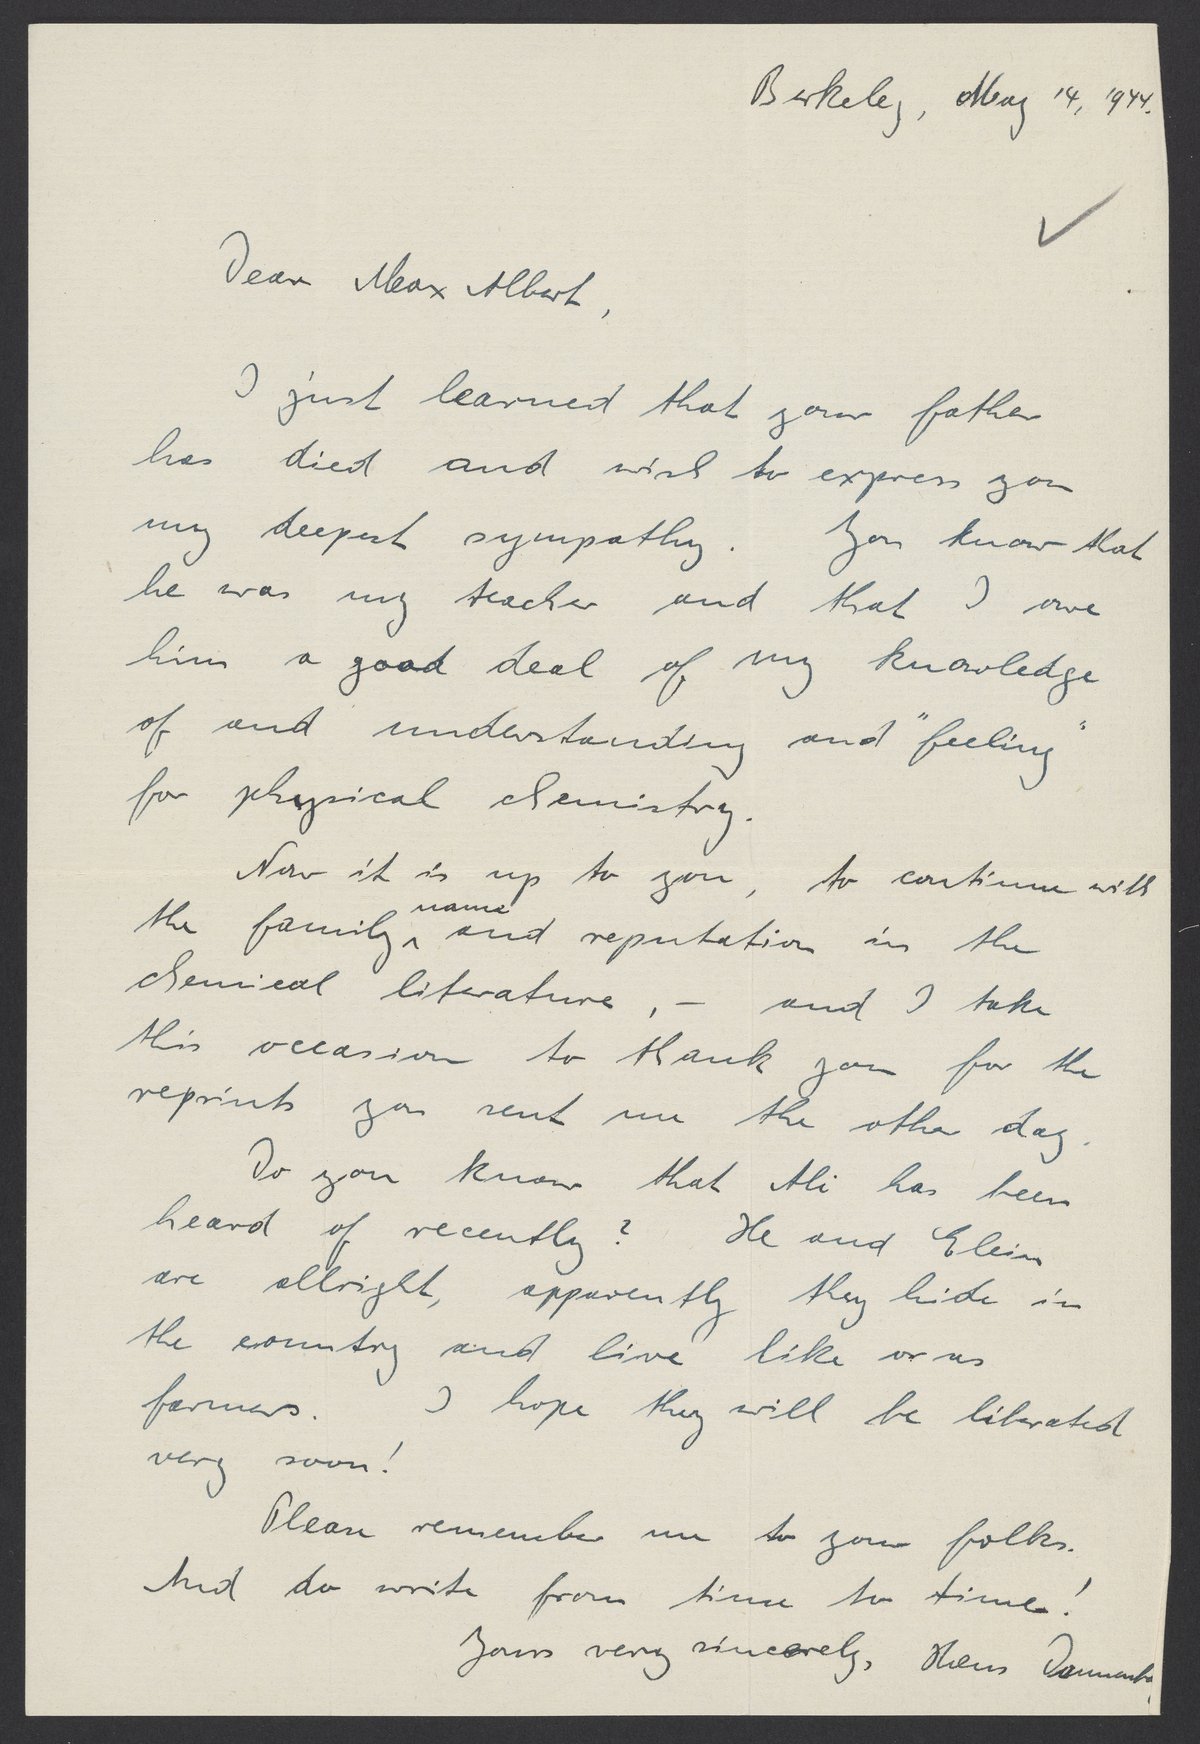 Berkeley, May 14, 1944.
Dear Max Albert,
I just learned that your father
has died and wish to express you
my deepest sympathy. You know that
he was my teacher and that I owe
him a good deal of my knowledge
of and understanding and "feeling"
for physical chemistry.
Now it is up to you, to continue with
the family name and reputation in the
chemical literature, – and I take
this occasion to thank you for the
reprints you sent me the other day.
Do you know that Ali has been
heard of recently? He and Elein
are allright, apparently they hide in
the country and live like or as
farmers. I hope they will be liberated
very soon!
Please remember me to your folks.
And do write from time to time!
Yours very sincerely, Hans